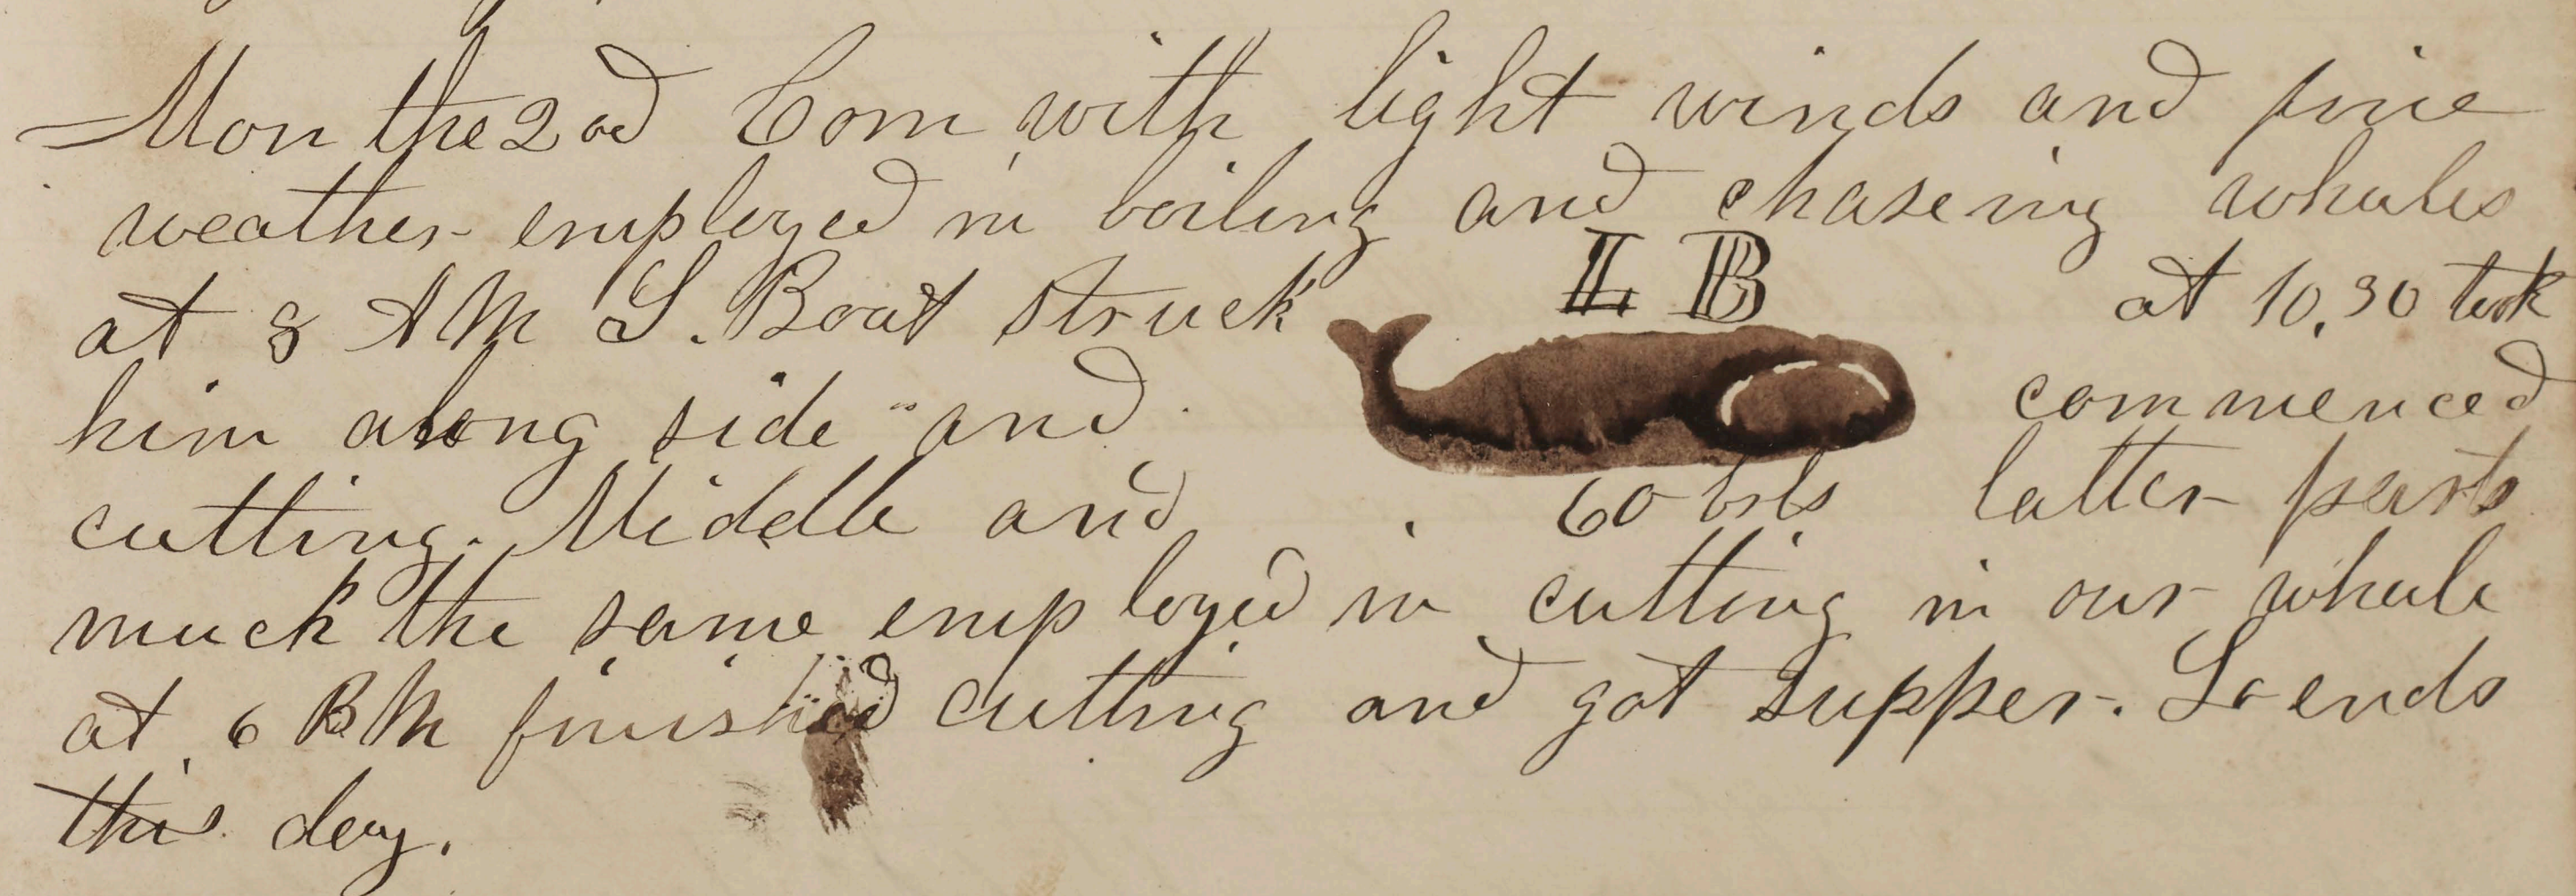 Mon the 2nd Com with light winds and fine
weather employed in boiling and chaseing whales
at 8 AM L. Boat struck L B at 10,30 took
him along side and commenced
cutting. Middle and 60 brls latter parts
much the same employed in cutting in our whale
at 6 PM finished cutting and got supper. So ends
this day.